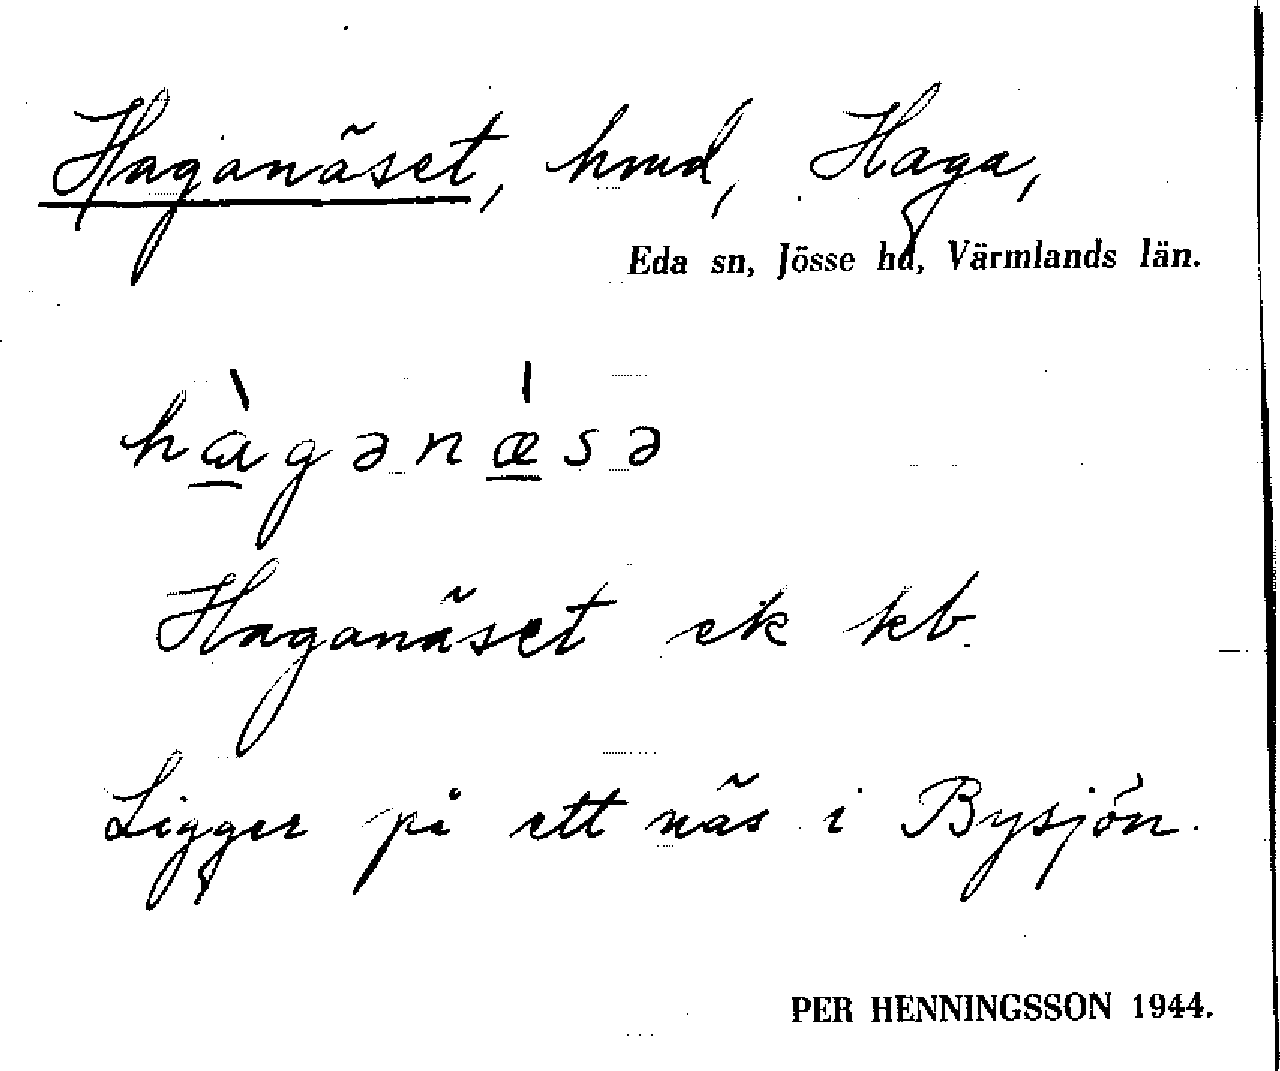 Haganäset, hmd, Haga,
Eda sn, Jösse hd, Värmlands län.
hàgənǽsə
Haganäset ek kb.
Ligger på ett näs i Bysjön.
PER HENNINGSSON 1944.